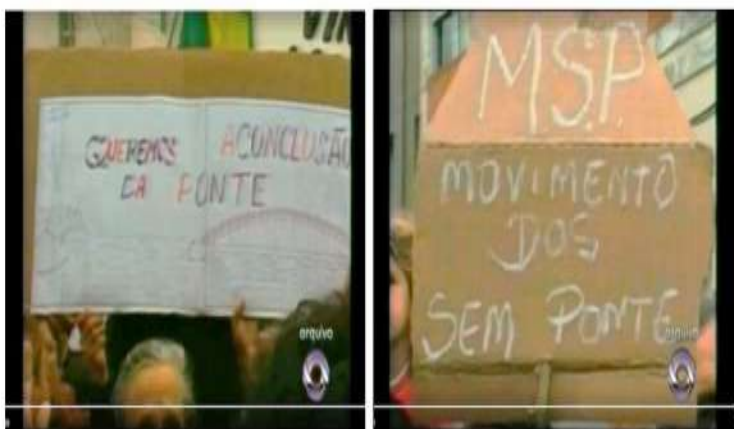 QUEREMOS A CONCLUSÃO
DA PONTE
arquivo
M.S.P.
MOVIMENTO
DOS
SEM PONTE
arquivo